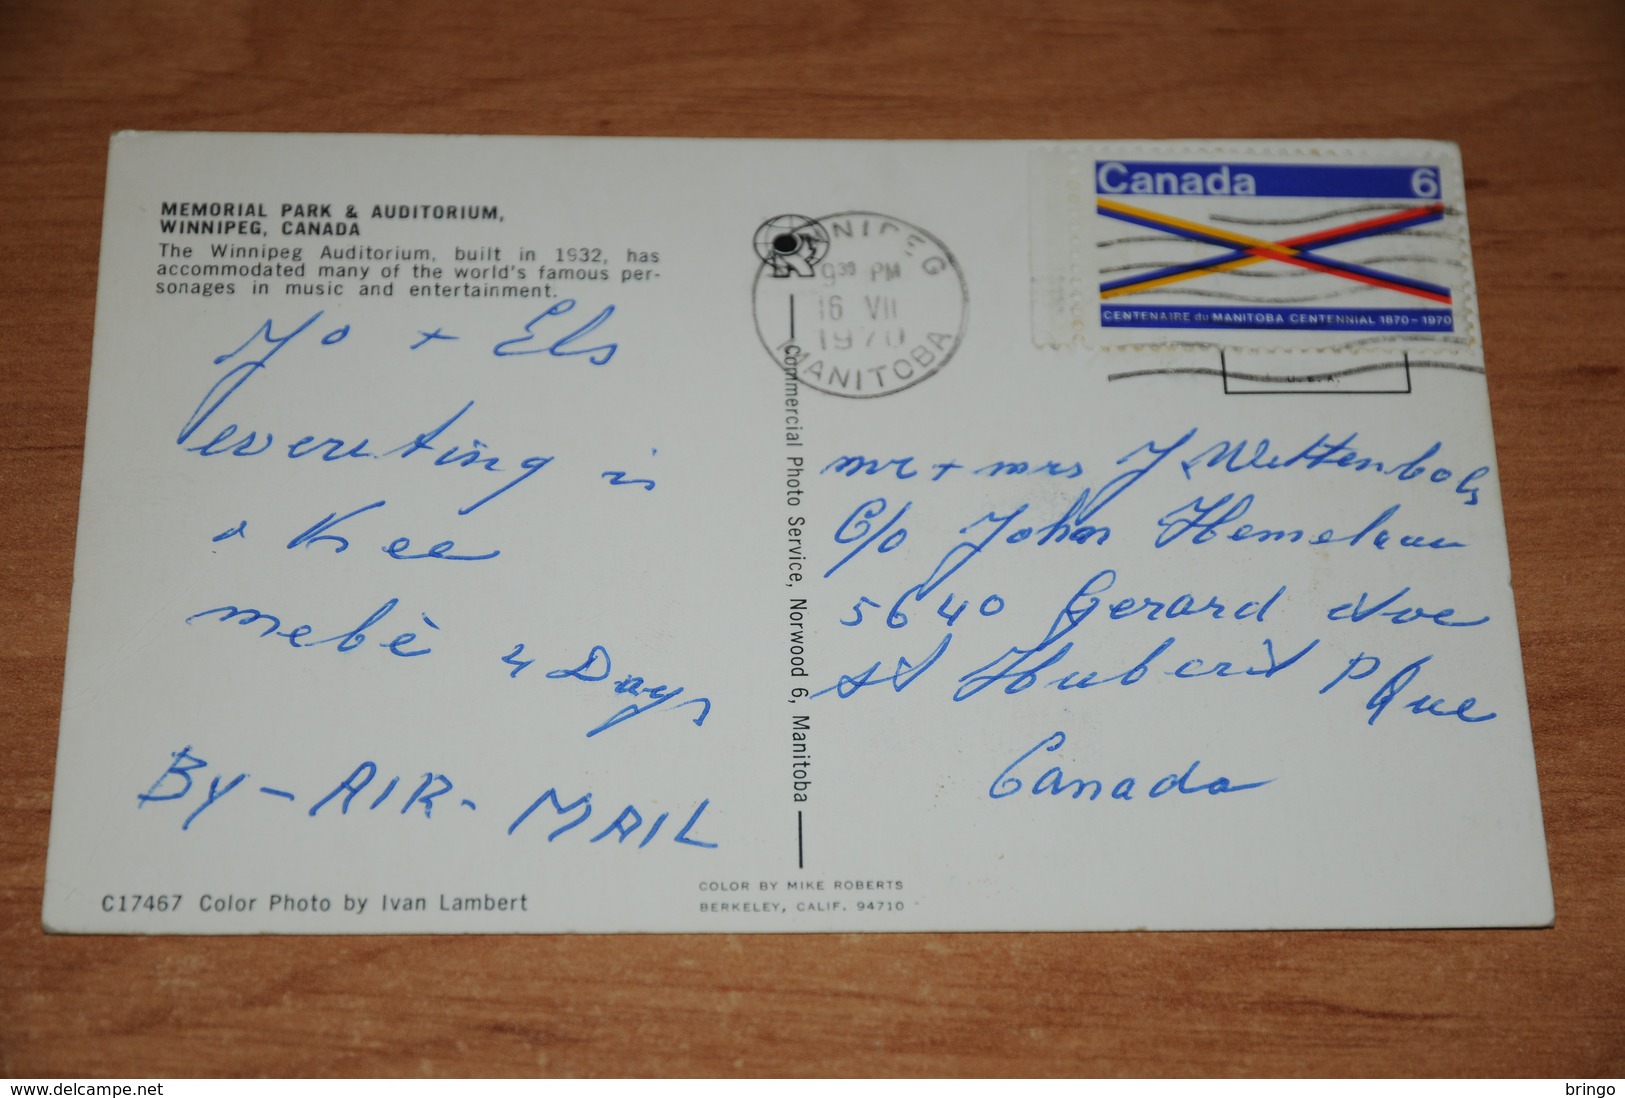 MEMORIAL PARK & AUDITORIUM,
WINNIPEG, CANADA
The Winnipeg Auditorium, built in 1932, has
accommodated many of the world's famous per-
sonages in music and entertainment.
Jo + Els
everuting is
o Kee
mebè 4 Days
BY-AIR-MAIL
C17467 Color Photo by Ivan Lambert
Commercial Photo Service, Norwood 6, Manitoba
COLOR BY MIKE ROBERTS
BERKELEY, CALIF. 94710
WINNIPEG
9 30 PM
16 VII
1970
MANITOBA
Canada 6
CENTENAIRE du MANITOBA CENTENNIAL 1870-1970
U.S.A.
mr + mrs J Wuttenbols
C/o John Hemelaar
5640 Gerard Ave
St Hubert P Que
Canada
www.delcampe.net
bringo